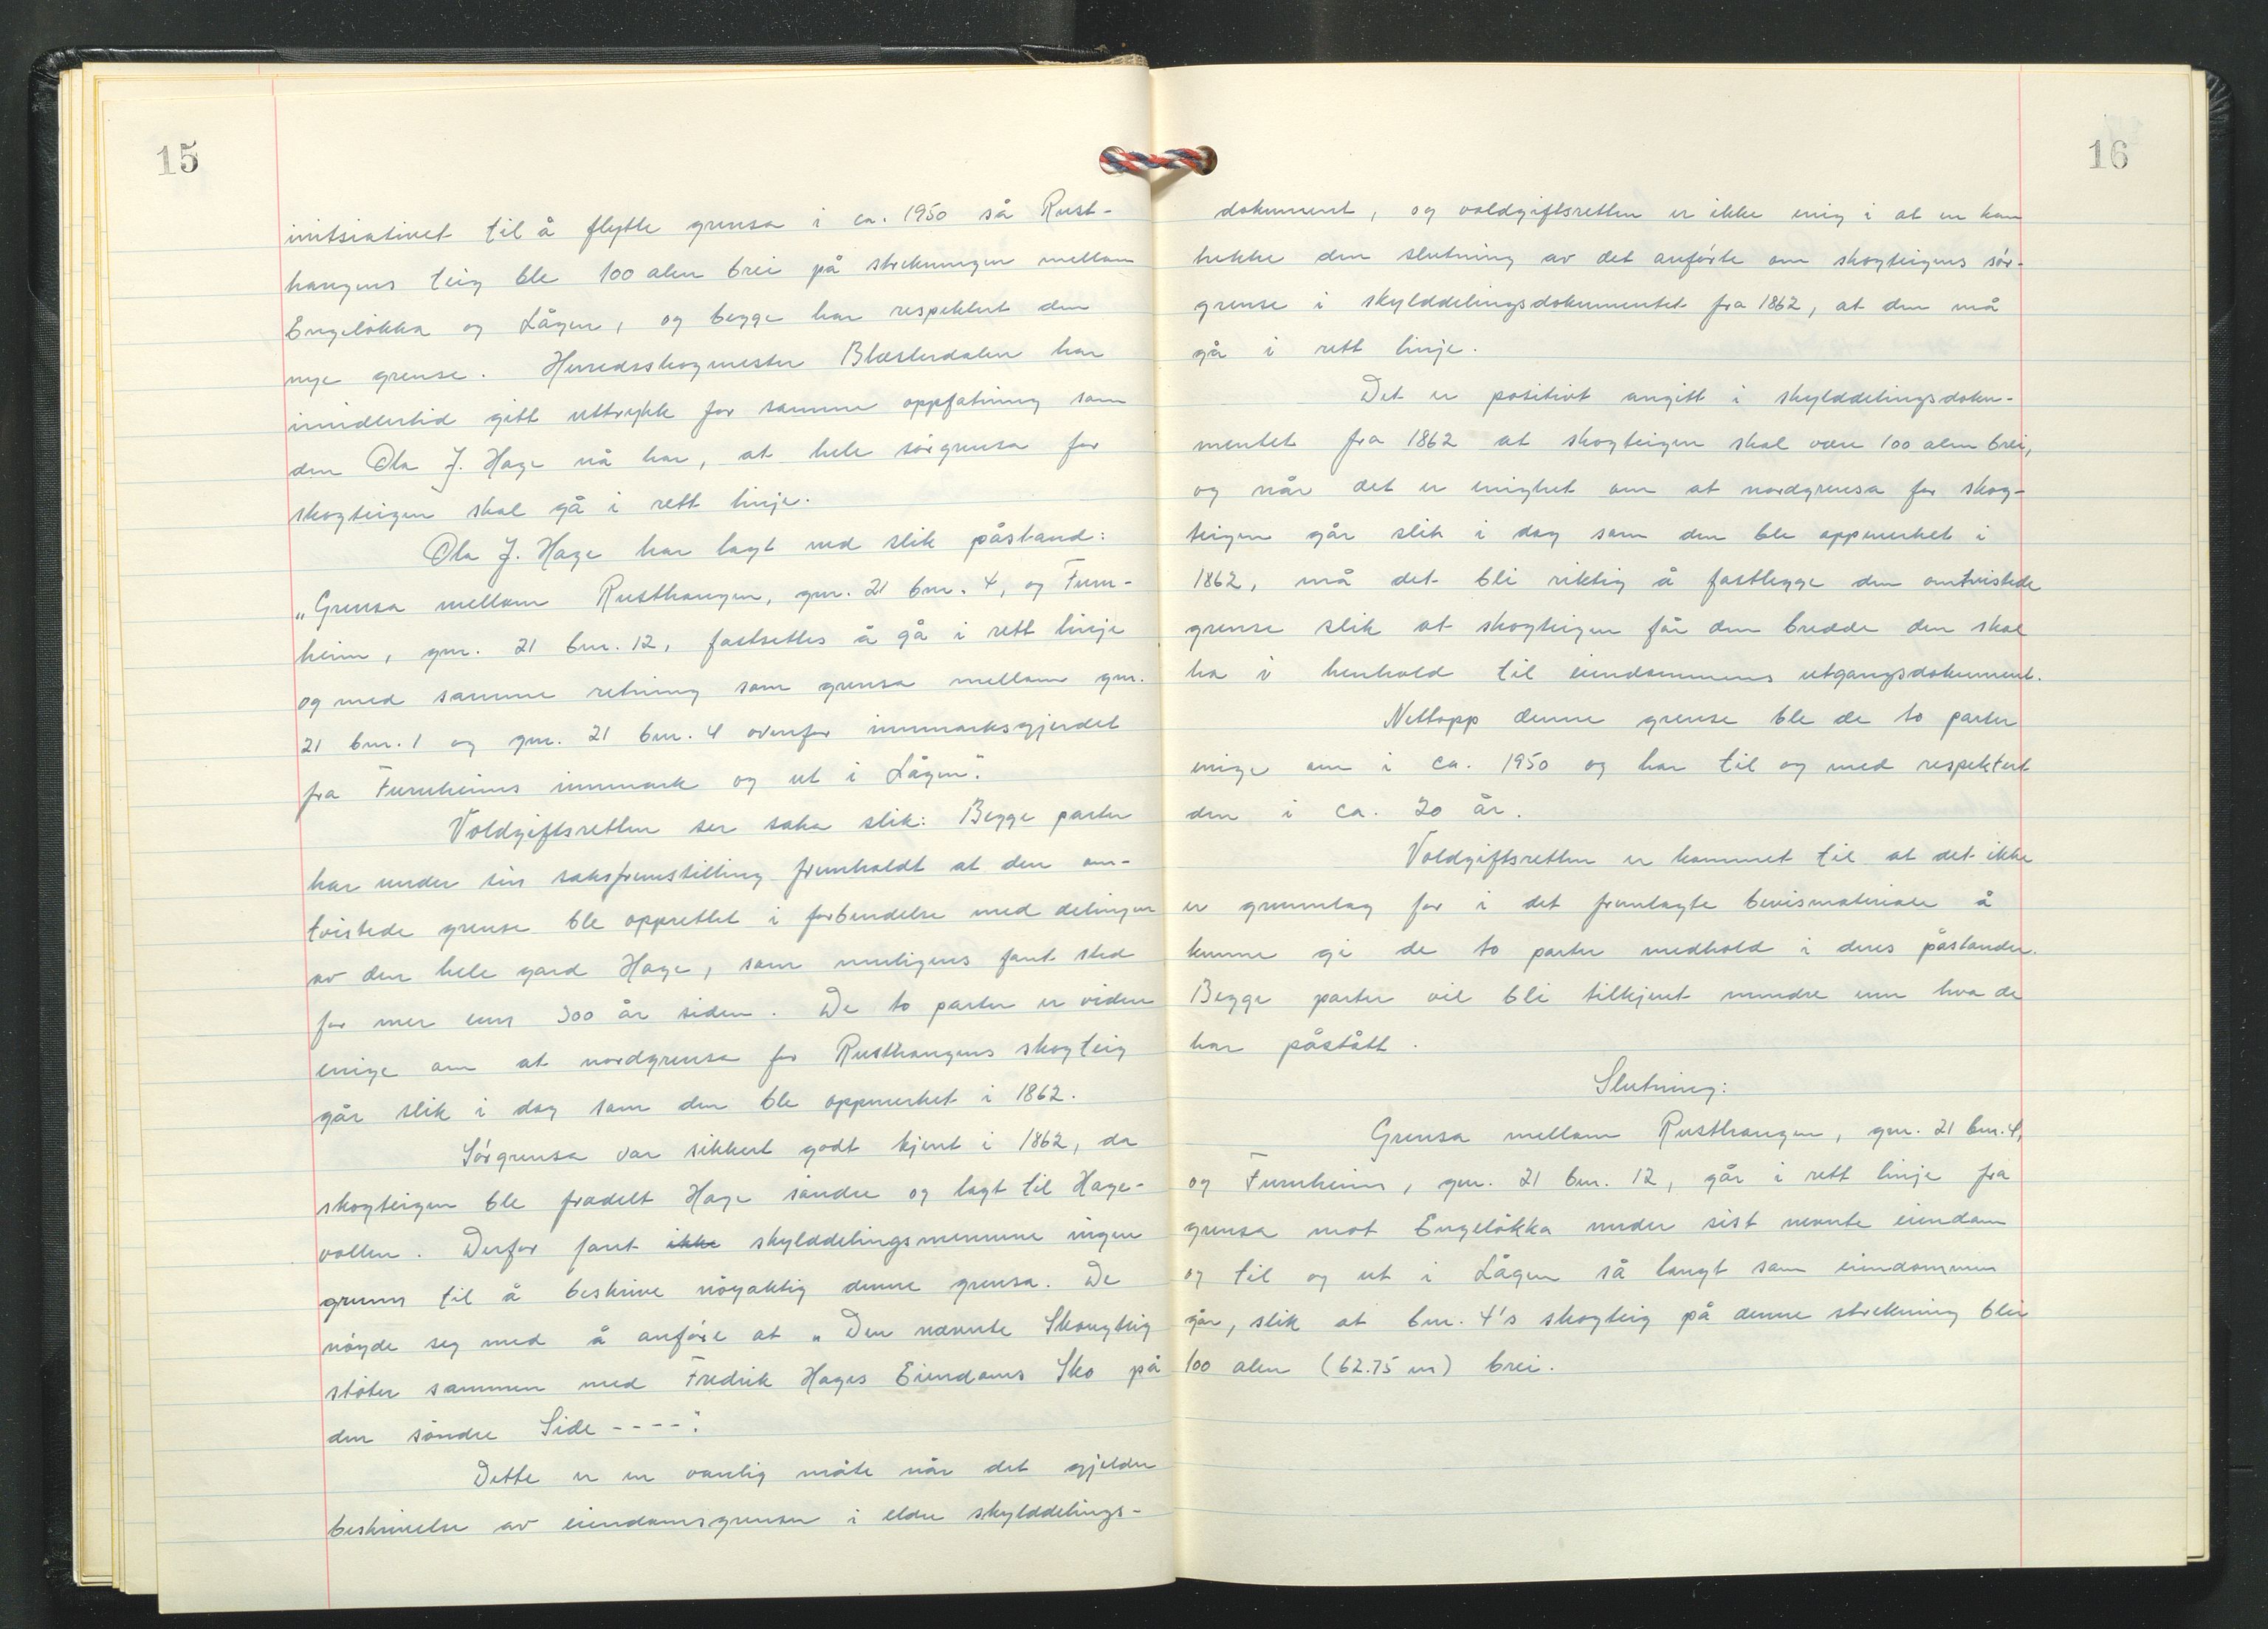 15
initsiativet til å flytte grensa i ca. 1950 så Rust-
haugens teig ble 100 alen brei på strekningen mellom
Engeløkka og Lågen, og begge har respektert den
nye grense. Herredsskogmester Blæsterdalen har
imidlertid gitt uttrykk for samme oppfatning som
den Ola J. Hage nå har, at hele sørgrensa for
skogteigen skal gå i rett linje.
Ola J. Hage har lagt ned slik påstand:
„Grensa mellom Rusthaugen, gnr. 21 bnr. 4, og Furu-
heim, gnr. 21 bnr. 12, fastsettes å gå i rett linje
og med samme retning som grensa mellom gnr.
21 bnr. 1 og gnr. 21 bnr. 4 ovenfor innmarksgjerdet
fra Furuheims innmark og ut i Lågen".
Voldgiftsretten ser saka slik: Begge parter
har under sin saksfremstilling fremholdt at den om-
tvistede grense ble opprettet i forbindelse med delingen
av den hele gard Hage, som muligens fant sted
for mer enn 300 år siden. De to parter er videre
enige om at nordgrensa for Rusthaugens skogteig
går slik i dag som den ble oppmerket i 1862.
Sørgrensa var sikkert godt kjent i 1862, da
skogteigen ble fradelt Hage søndre og lagt til Hage-
vollen. Derfor fant ikke skylddelingsmennene ingen
grunn til å beskrive nøyaktig denne grensa. De
nøyde seg med å anføre at „Den nævnte Skougteig
støter sammen med Fredrik Hages Eiendoms Sko på
den søndre Side ----".
Dette er en vanlig måte når det gjelder
beskrivelse av eiendomsgrenser i eldre skylddelings-
16
dokument, og voldgiftsretten er ikke enig i at en kan
trekke den slutning av det anførte om skogteigens sør-
grense i skylddelingsdokumentet fra 1862, at den må
gå i rett linje.
Det er positivt angitt i skylddelingsdoku-
mentet fra 1862 at skogteigen skal være 100 alen brei,
og når det er enighet om at nordgrensa for skog-
teigen går slik i dag som den ble oppmerket i
1862, må det bli riktig å fastlegge den omtvistede
grense slik at skogteigen får den bredde den skal
ha i henhold til eiendommens utgangsdokument.
Nettopp denne grense ble de to parter
enige om i ca. 1950 og har til og med respektert
den i ca. 20 år.
Voldgiftsretten er kommet til at det ikke
er grunnlag for i det fremlagte bevismateriale å
kunne gi de to parter medhold i deres påstander.
Begge parter vil bli tilkjent mindre enn hva de
har påstått.
Slutning:
Grensa mellom Rusthaugen, gnr. 21 bnr. 4,
og Furuheim, gnr. 21 bnr. 12, går i rett linje fra
grensa mot Engeløkka under sist nevnte eiendom
og til og ut i Lågen så langt som eiendommen
går, slik at bnr. 4's skogteig på denne strekning blir
100 alen (62.75 m) brei.